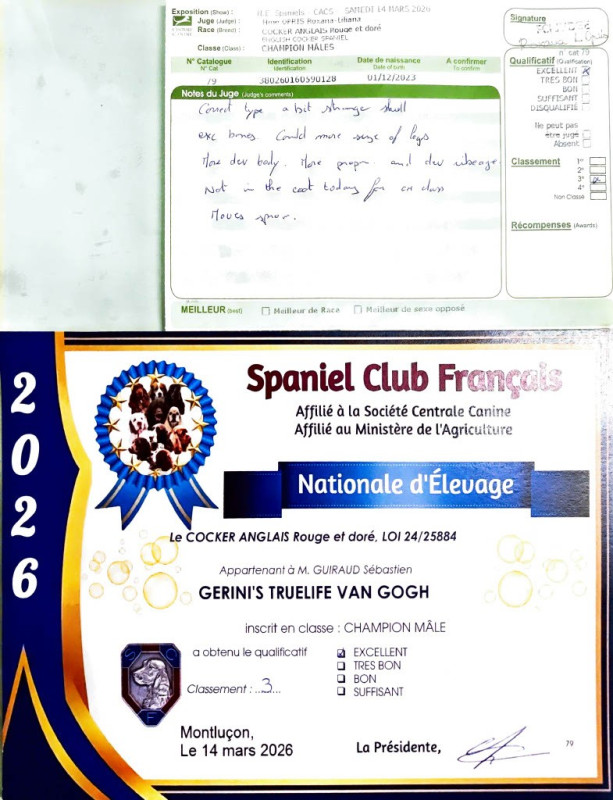 Exposition (Show) : N.E Spaniels - CACS - SAMEDI 14 MARS 2026
Juge (Judge) : Mme OPRIS Roxana-Liliana
Race (Breed) : COCKER ANGLAIS Rouge et doré
ENGLISH COCKER SPANIEL
Classe (Class) : CHAMPION MÂLES
N° Catalogue
N° Cat
79
Identification
Identification
380260160590128
Date de naissance
Date of birth
01/12/2023
A confirmer
To confirm
Signature
n° cat 79
Qualificatif (Qualification)
EXCELLENT X
TRES BON
BON
SUFFISANT
DISQUALIFIÉ
Ne peut pas
être jugé
Absent
Classement 1er
2e
3e
4e
Non Classé
Récompenses (Awards)
Notes du Juge (Judge's comments)
Correct type a bit strange skull
exc bones. Could more of legs
More dev body. More and dev
Not in the coat today for class
Moves
MEILLEUR (best) Meilleur de Race Meilleur de sexe opposé
2026
Spaniel Club Français
Affilié à la Société Centrale Canine
Affilié au Ministère de l'Agriculture
Nationale d'Élevage
Le COCKER ANGLAIS Rouge et doré, LOI 24/25884
Appartenant à M. GUIRAUD Sébastien
GERINI'S TRUELIFE VAN GOGH
inscrit en classe : CHAMPION MÂLE
a obtenu le qualificatif
EXCELLENT
TRES BON
BON
SUFFISANT
Classement : ..3...
S C F
Montluçon,
Le 14 mars 2026
La Présidente,
79